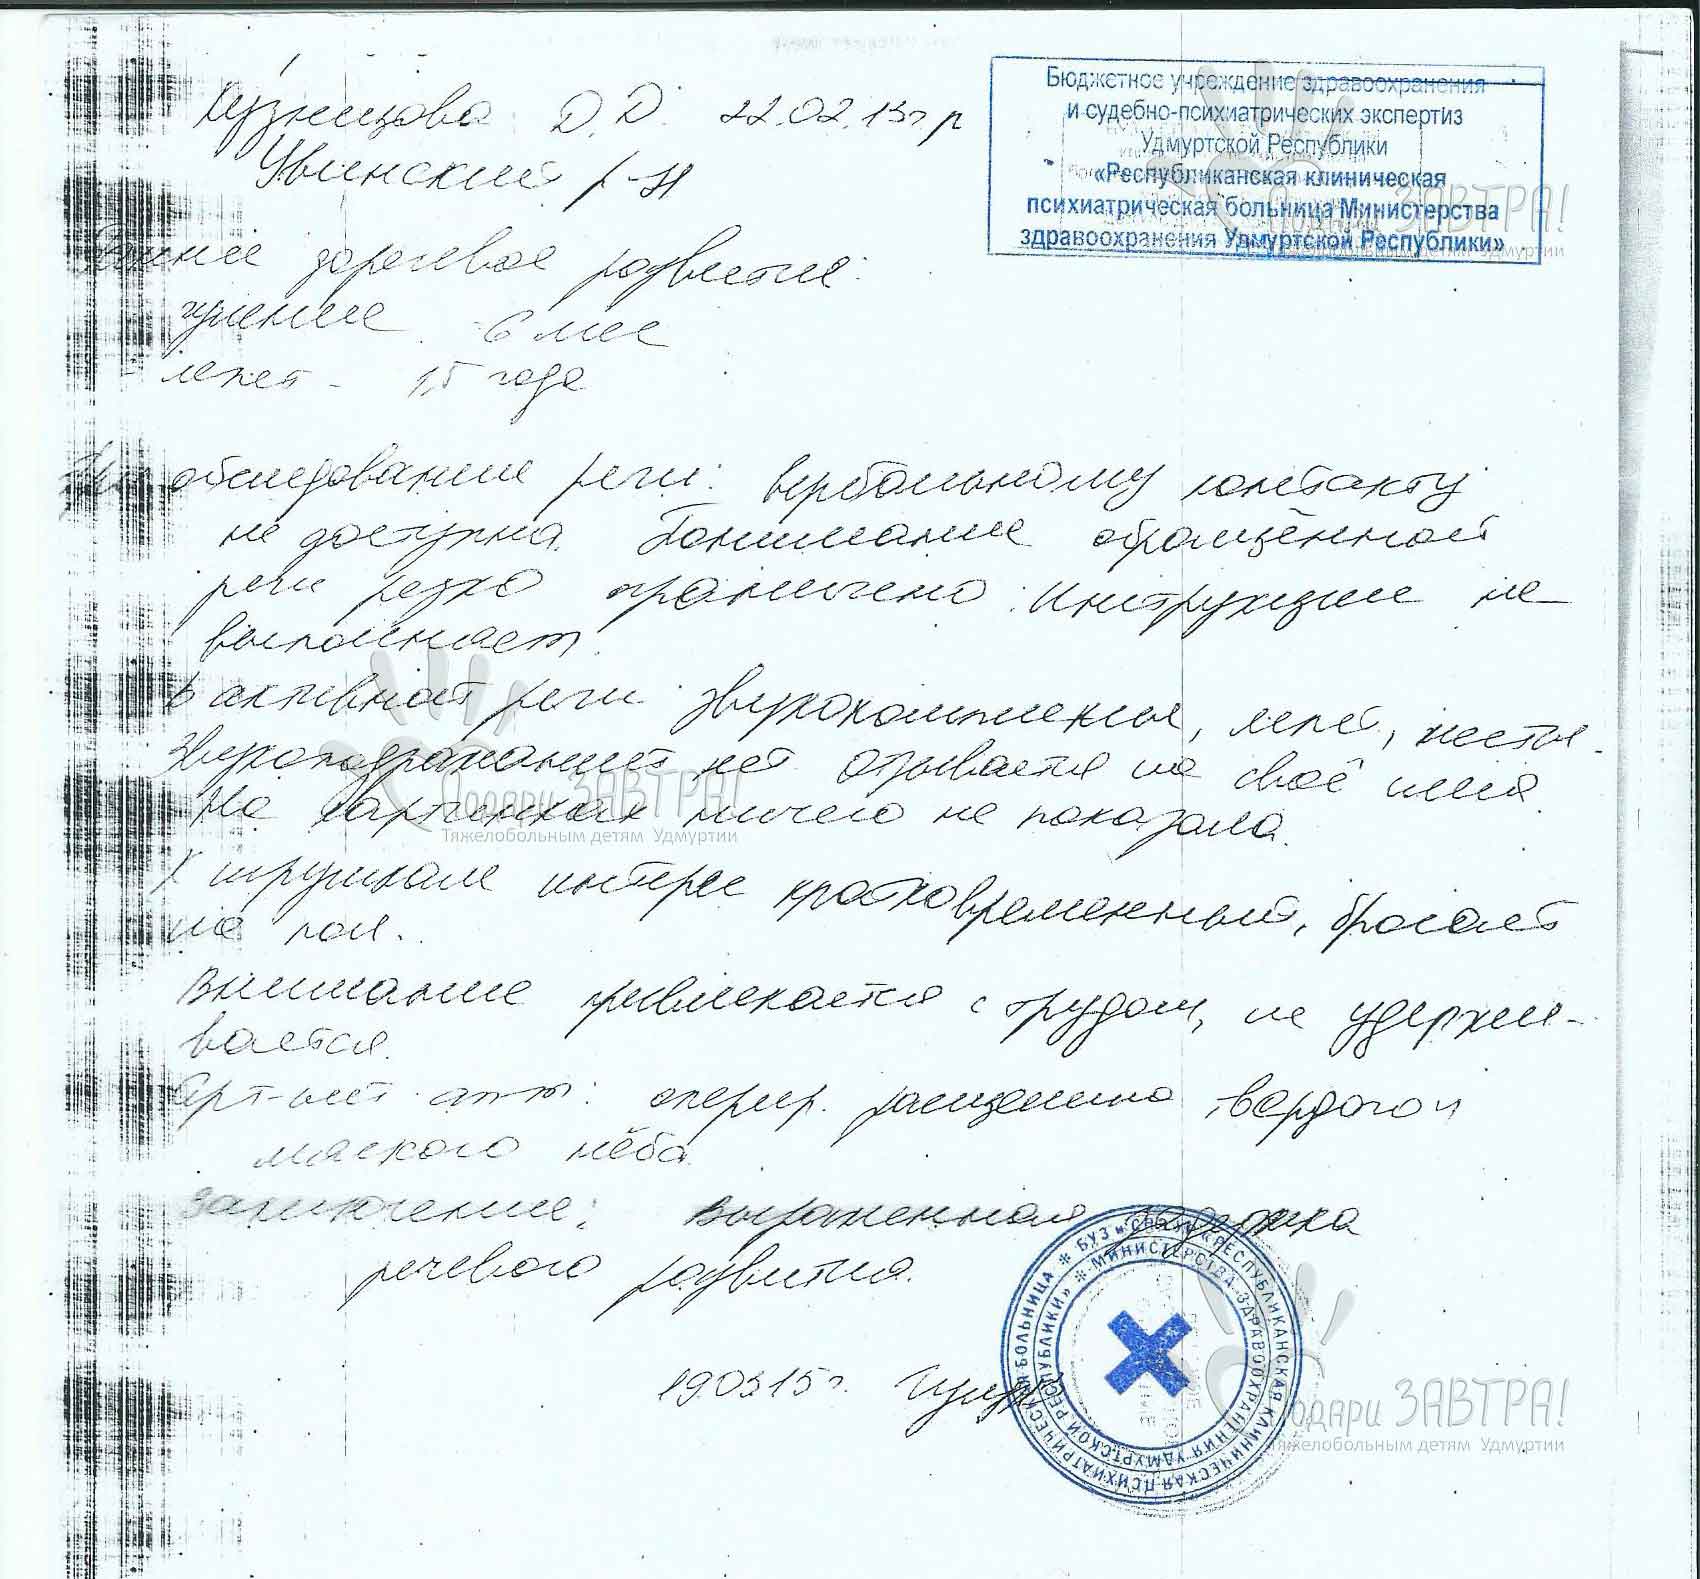 Бюджетное учреждение здравоохранения
и судебно-психиатрических экспертиз
Удмуртской Республики
«Республиканская клиническая
психиатрическая больница Министерства
здравоохранения Удмуртской Республики»
Кузнецова Д.Д. 22.02.13г р
Увинский р-н
Раннее доречевое развитие:
гуление 6 мес
лепет - 1,5 года
При обследовании речи: вербальному контакту
не доступна. Понимание обращённой
речи резко ограничено. Инструкции не
выполняет.
В активной речи звукокомплексы, лепет, жесты.
Звукоподражаний нет. Отзывается на своё имя.
На картинках ничего не показала.
К игрушкам интерес кратковременный, бросает
на пол.
Внимание привлекается с трудом, не удержи-
вается.
Арт-ые? опер. расщелина твёрдого и
мягкого нёба
Заключение: выраженная задержка
речевого развития.
19.03.15г.
БУЗ и СПЭ УР «РЕСПУБЛИКАНСКАЯ КЛИНИЧЕСКАЯ ПСИХИАТРИЧЕСКАЯ БОЛЬНИЦА
МИНИСТЕРСТВА ЗДРАВООХРАНЕНИЯ УДМУРТСКОЙ РЕСПУБЛИКИ»
Подари ЗАВТРА!
Тяжелобольным детям Удмуртии